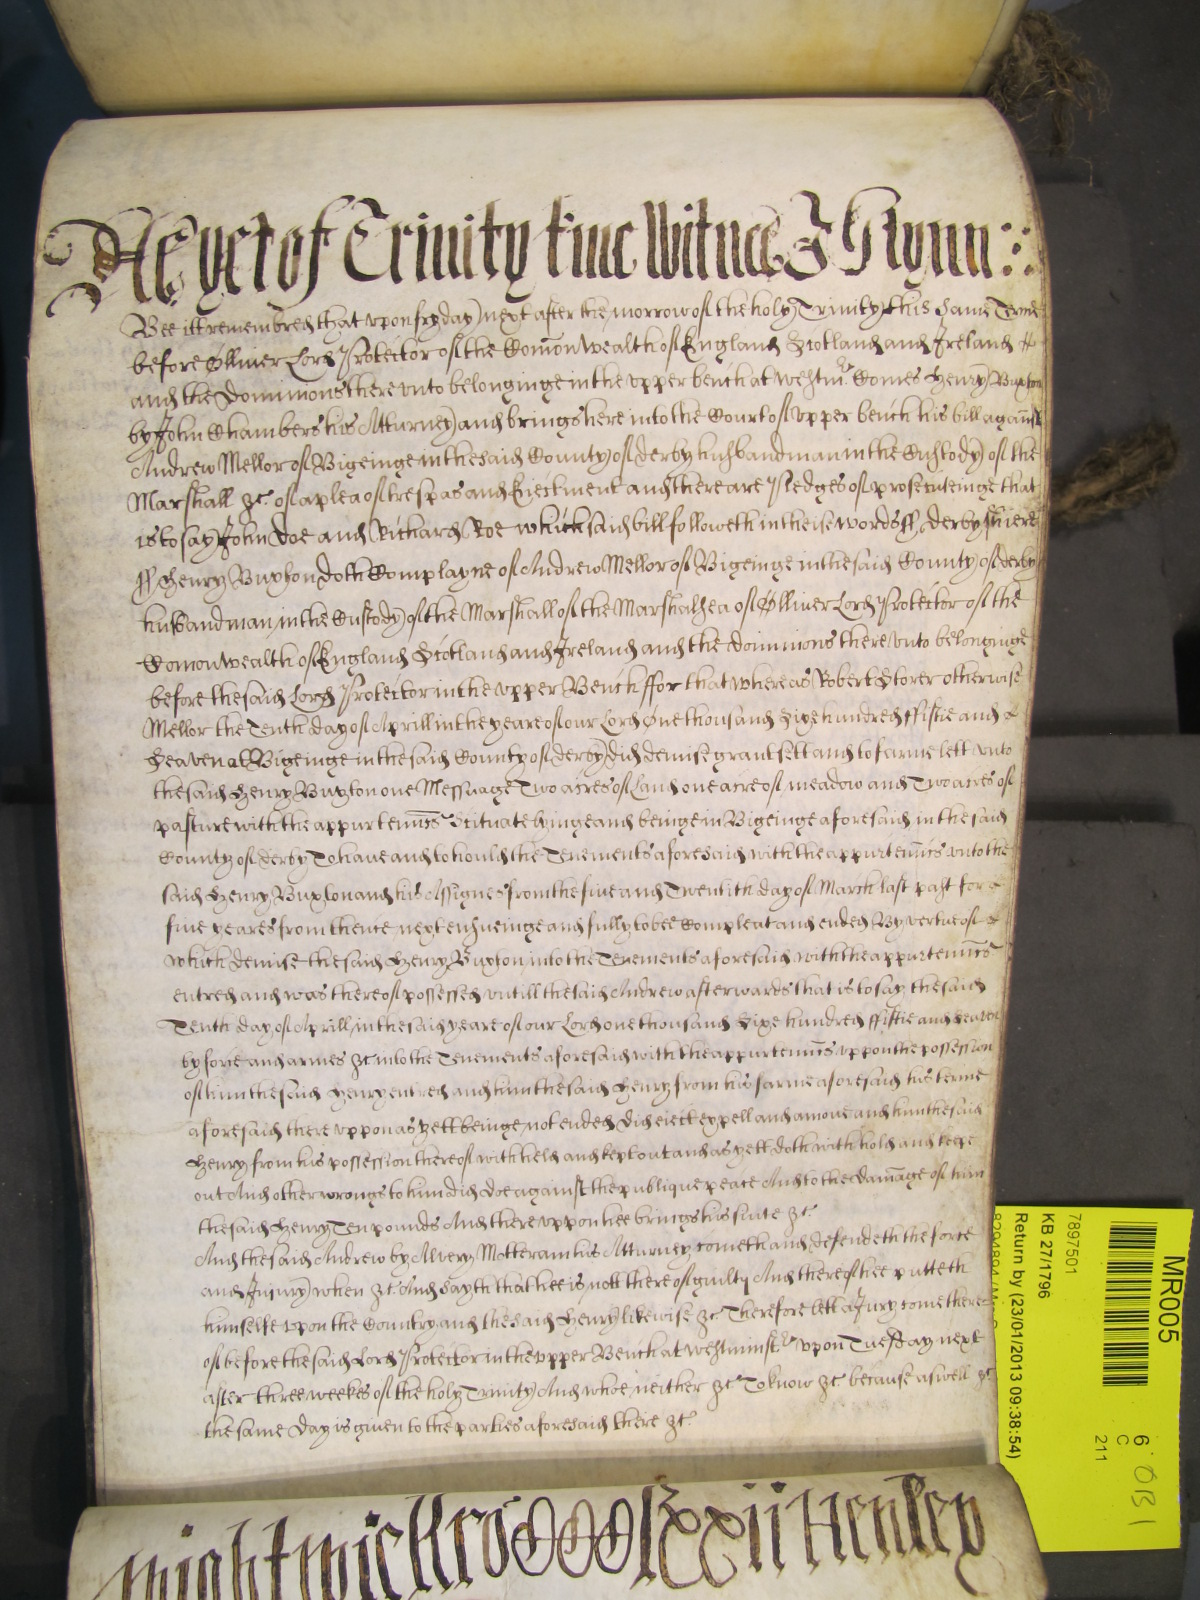 As yet of Trinity time Witnes J Glynn
Bee itt remembred that upon fryday next after the morrow of the holy Trinity this same Terme
before Olliver Lord Protector of the Comon wealth of England Scotland and Ireland &
and the Dominions there unto belonginge in the upper bench at Westmr Comes Henry Buxton
by John Chambers his Atturney and brings here into the Court of upper bench his bill against
Andrew Mellor of Bigeinge in the said County of derby husbandman in the Custody of the
Marshall &c of a plea of trespas and Eiectment and there are Pledges of prosecuteinge that
is to say John Doe and Richard Roe which said bill followeth in theise words ss derbyshiere
ss Henry Buxton doth Complayne of Andrew Mellor of Bigeinge in the said County of derby
husbandman in the Custody of the Marshall of the Marshalsea of Olliver Lord Protector of the
Comon wealth of England Scotland and Ireland and the dominions there unto belonginge
before the said Lord Protector in the upper Bench ffor that whereas Robert Storer otherwise
Mellor the Tenth day of Aprill in the yeare of our Lord One thousand Sixe hundred ffiftie and &
Seaven at Bigeinge in the said County of derby did demise grant sett and to farme lett unto
the said Henry Buxton one Messuage Two acres of Land one acre of meadow and Two acres of
pasture with the appurtennces Scituate lyinge and beinge in Bigeinge aforesaid in the said
County of derby To have and to hould the Tenements aforesaid with the appurtennces unto the
said Henry Buxton and his Assignes from the five and Twentith day of March last past for &
five yeares from thence next ensueinge and fully to bee Compleat and ended By vertue of &
which demise the said Henry Buxton into the Tenements aforesaid with the appurtennces
entred and was thereof possessed untill the said Andrew afterwards that is to say the said
Tenth day of Aprill in the said yeare of our Lord one thousand Sixe hundred ffiftie and seaven
by force and armes &c into the Tenements aforesaid with the appurtennces uppon the possession
of him the said Henry entred and him the said Henry from his farme aforesaid his terme
aforesaid there uppon as yett beinge not ended did eiect expell and amove and him the said
Henry from his possession thereof with held and kept out and as yett doth with hold and keepe
out And other wrongs to him did doe against the publique peace And to the damage of him
the said Henry Ten pounds And there uppon hee brings his suite &c
And the said Andrew by Alvery Motteram his Atturney cometh and defendeth the force
and Injury when &c And sayth that hee is nott thereof guilty And thereof hee putteth
himselfe upon the Country and the said Henry likewise &c Therefore lett a Jury come there
of before the said Lord Protector in the upper Bench at Westminstr upon Tuesday next
after three weekes of the holy Trinity And whoe neither &c To know &c because aswell &c
the same day is given to the parties aforesaid there &c
Henley
MR005
7897501
KB 27/1796
Return by (23/01/2013 09:38:54)
6
C
211